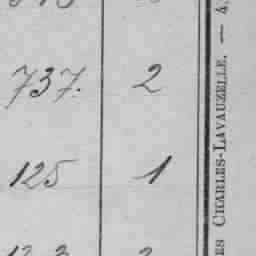 737. 2
125 1
ES CHARLES-LAVAUZELLE. — 4,